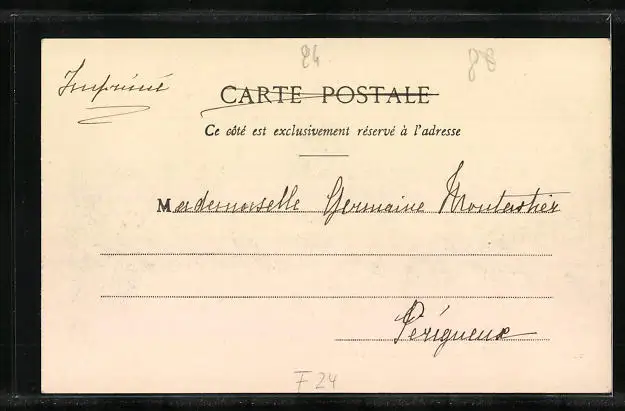 24 88
Imprimé
CARTE POSTALE
Ce côté est exclusivement réservé à l'adresse
Mademoiselle Germaine Montastier
Périgueux
F 24